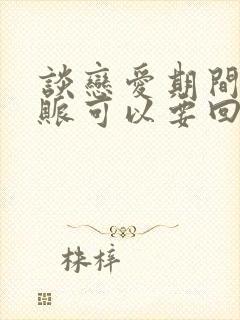 談戀愛期間
賬可以要回
株梓